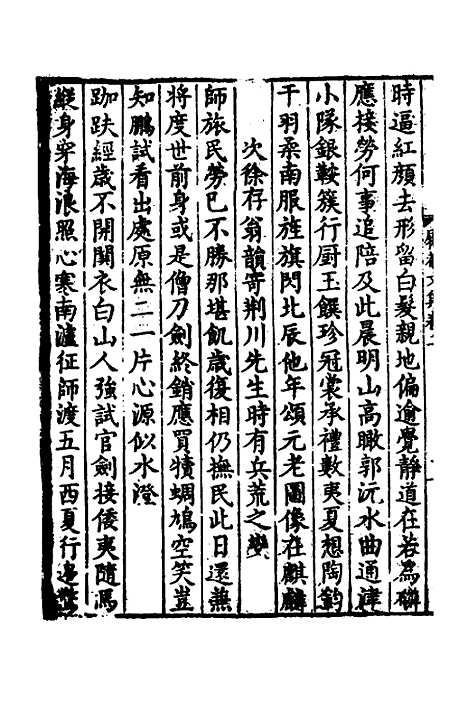 時逼紅顏去形留白髮親地偏逾覺靜道在若為磷
應接勞何事追陪及此晨明山高瞰郭沅水曲通津
小隊銀鞍簇行厨玉饌珍冠裳承禮數夷夏想陶鈞
干羽柔南服旌旗閃北辰他年頌元老圖像在麒麟
次徐存翁韻寄荆川先生時有兵荒之變
師旅民勞已不勝那堪飢歲復相仍撫民此日還兼
将度世前身或是僧刀劍終銷應買犢蜩鳩空笑豈
知鵬試看出處原無二一片心源似水澄
跏趺經歲不開関衣白山人強試官劍接倭夷隨馮
縱身穿海浪照心寒南瀘征師渡五月西夏行邊